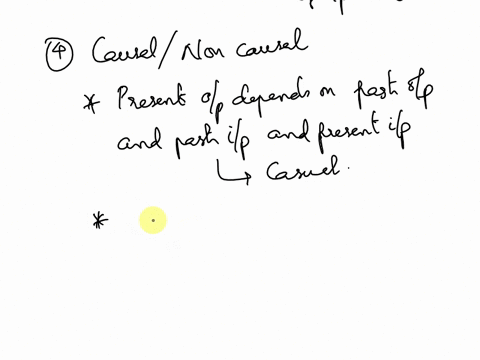 ④ Causal/Non causal
* Present o/p depends on past o/p
and past i/p and present i/p
↳ Casual.
*